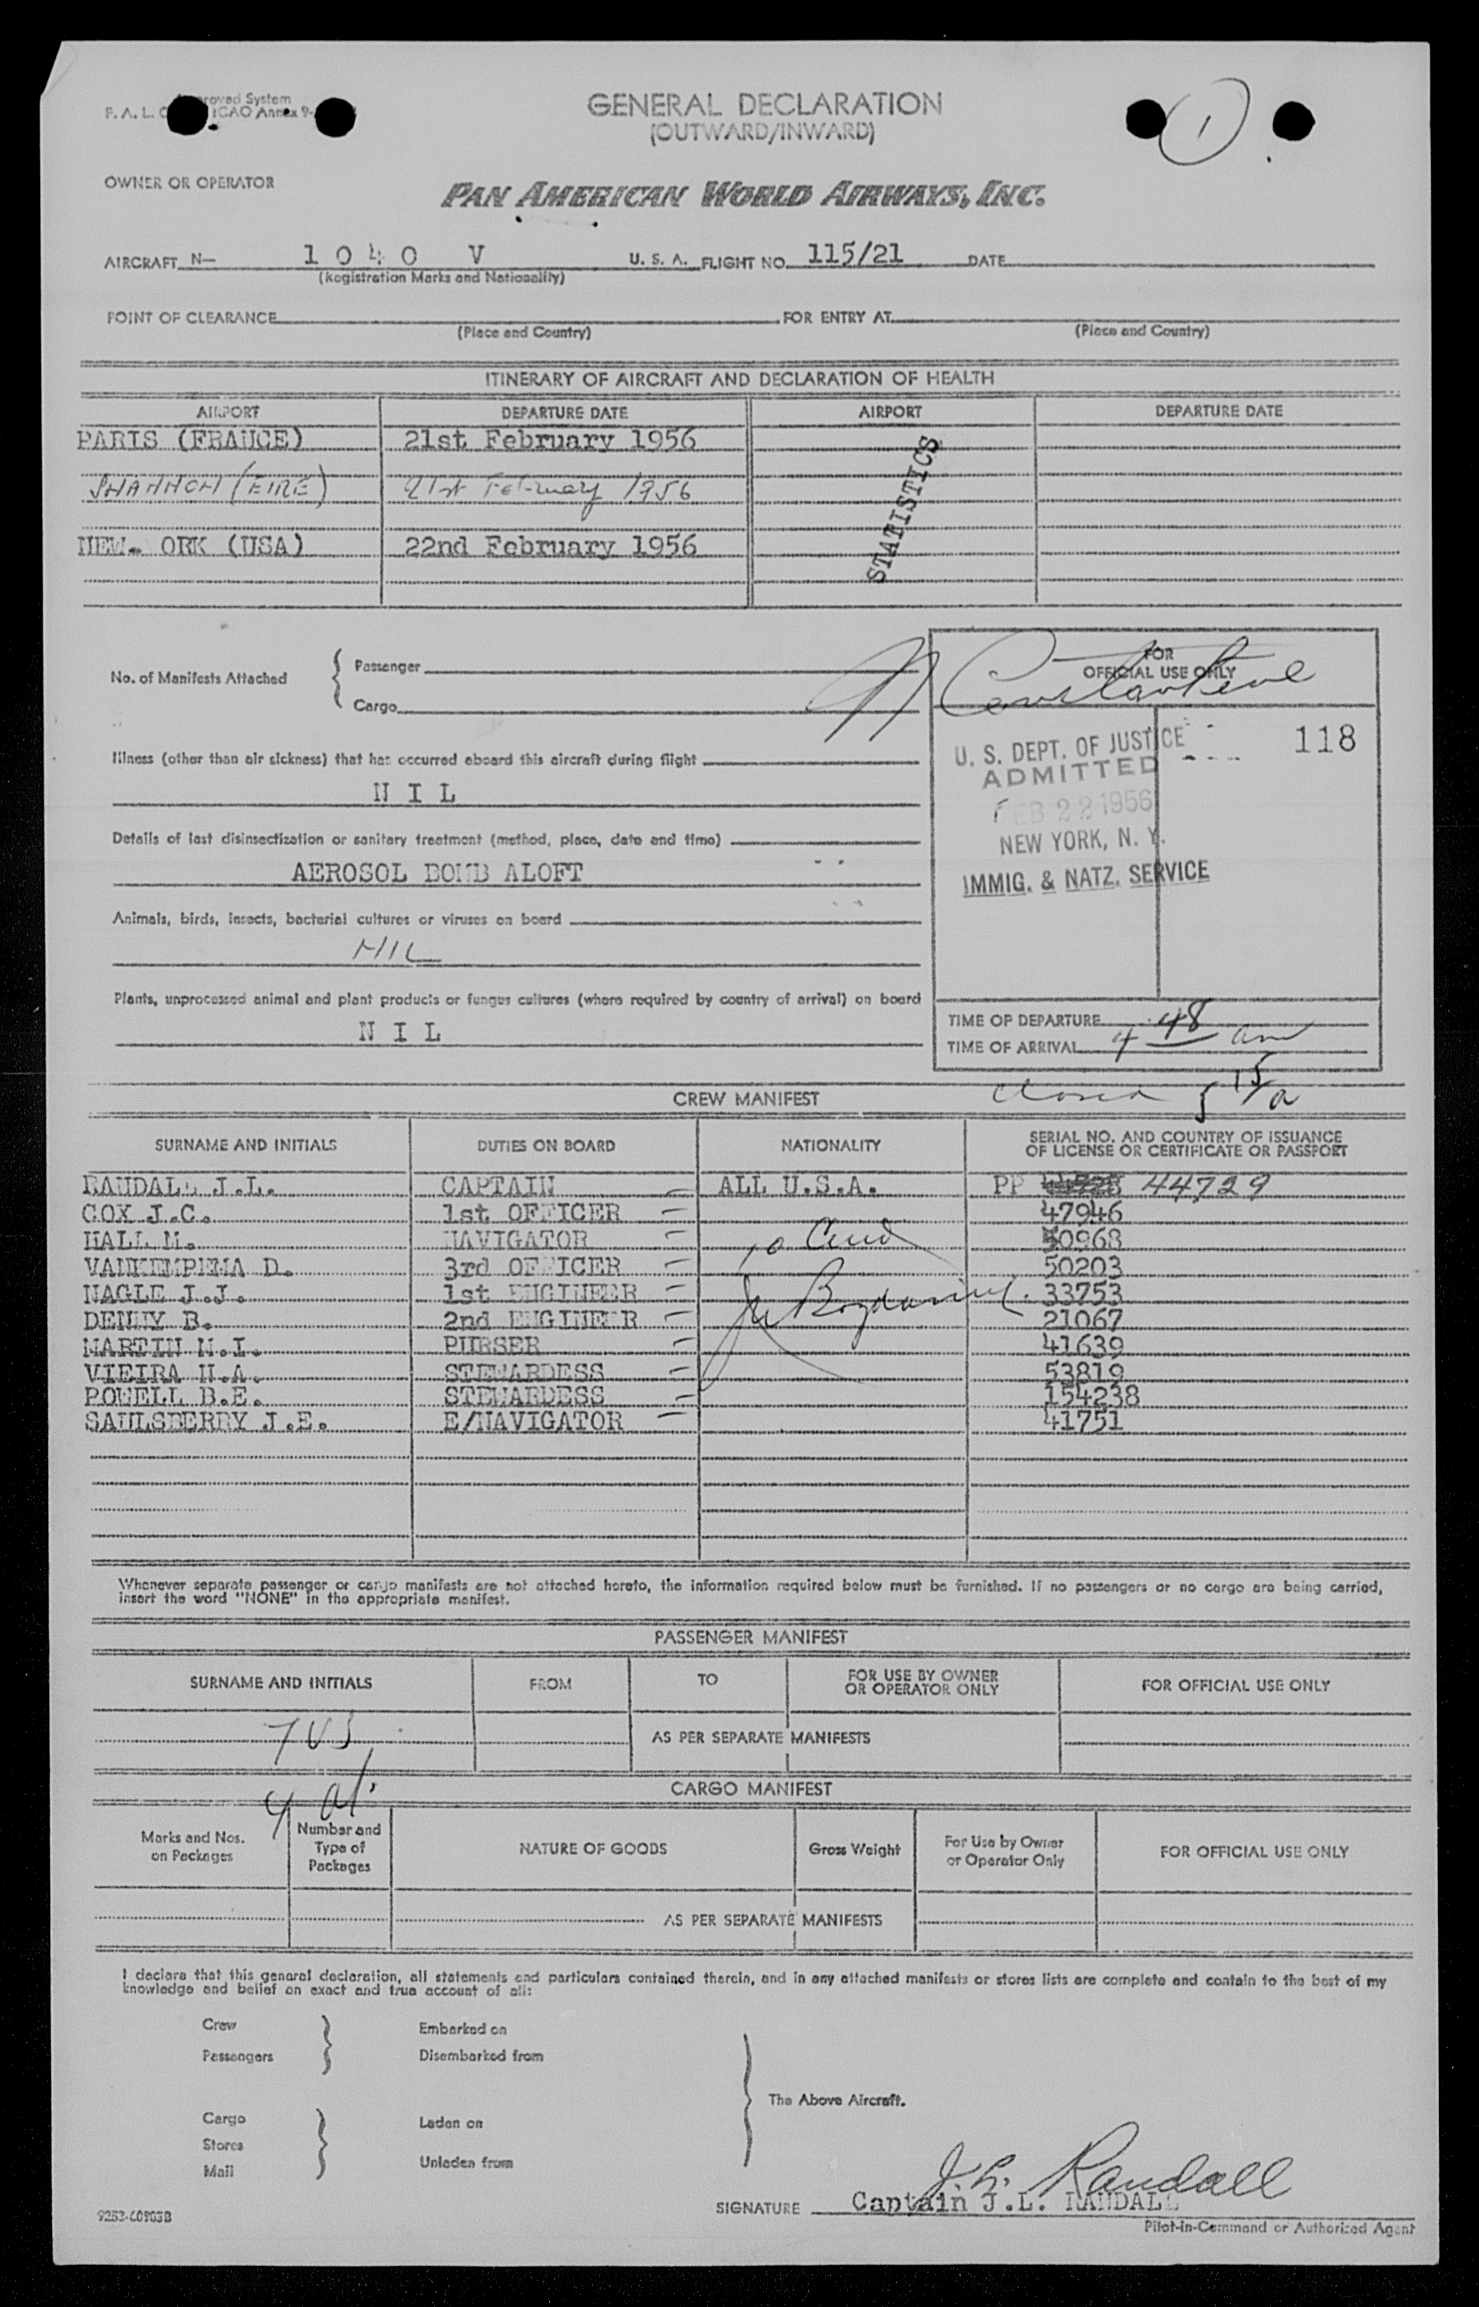 GENERAL DECLARATION
(OUTWARD/INWARD)
1
OWNER OR OPERATOR
PAN AMERICAN WORLD AIRWAYS, INC.
AIRCRAFT N— 1 0 4 0 V U. S. A. FLIGHT NO. 115/21 DATE
(Registration Marks and Nationality)
POINT OF CLEARANCE FOR ENTRY AT
(Place and Country) (Place and Country)
ITINERARY OF AIRCRAFT AND DECLARATION OF HEALTH
AIRPORT DEPARTURE DATE AIRPORT DEPARTURE DATE
PARIS (FRANCE) 21st February 1956
SHANNON (EIRE) 21st February 1956
NEW. ORK (USA) 22nd February 1956
STATISTICS
No. of Manifests Attached { Passenger
Cargo
FOR
OFFICIAL USE ONLY
N Constantine
U. S. DEPT. OF JUSTICE 118
ADMITTED
FEB 22 1956
NEW YORK, N. Y.
IMMIG. & NATZ. SERVICE
Illness (other than air sickness) that has occurred aboard this aircraft during flight
N I L
Details of last disinsectization or sanitary treatment (method, place, date and time)
AEROSOL BOMB ALOFT
Animals, birds, insects, bacterial cultures or viruses on board
NIL
Plants, unprocessed animal and plant products or fungus cultures (where required by country of arrival) on board
N I L
TIME OF DEPARTURE
TIME OF ARRIVAL 4 48 am
CREW MANIFEST closed 5 15/a
SURNAME AND INITIALS DUTIES ON BOARD NATIONALITY SERIAL NO. AND COUNTRY OF ISSUANCE
OF LICENSE OR CERTIFICATE OR PASSPORT
RANDALL J.L. CAPTAIN ALL U.S.A. PP 44729
COX J.C. 1st OFFICER 47946
HALL M. NAVIGATOR 50968
VANKEMPEMA D. 3rd OFFICER 50203
NAGLE J.J. 1st ENGINEER 33753
DENNY B. 2nd ENGINEER 21067
MARTIN M.I. PURSER 41639
VIEIRA H.A. STEWARDESS 53819
POWELL B.E. STEWARDESS 154238
SAULSBERRY J.E. E/NAVIGATOR 41751
Whenever separate passenger or cargo manifests are not attached hereto, the information required below must be furnished. If no passengers or no cargo are being carried,
insert the word "NONE" in the appropriate manifest.
PASSENGER MANIFEST
SURNAME AND INITIALS FROM TO FOR USE BY OWNER
OR OPERATOR ONLY FOR OFFICIAL USE ONLY
7 US
AS PER SEPARATE MANIFESTS
4 al.
CARGO MANIFEST
Marks and Nos.
on Packages Number and
Type of
Packages NATURE OF GOODS Gross Weight For Use by Owner
or Operator Only FOR OFFICIAL USE ONLY
AS PER SEPARATE MANIFESTS
I declare that this general declaration, all statements and particulars contained therein, and in any attached manifests or stores lists are complete and contain to the best of my
knowledge and belief an exact and true account of all:
Crew Embarked on
Passengers Disembarked from
The Above Aircraft.
Cargo Laden on
Stores
Mail Unladen from
J. L. Randall
SIGNATURE Captain J.L. RANDALL
Pilot-in-Command or Authorized Agent